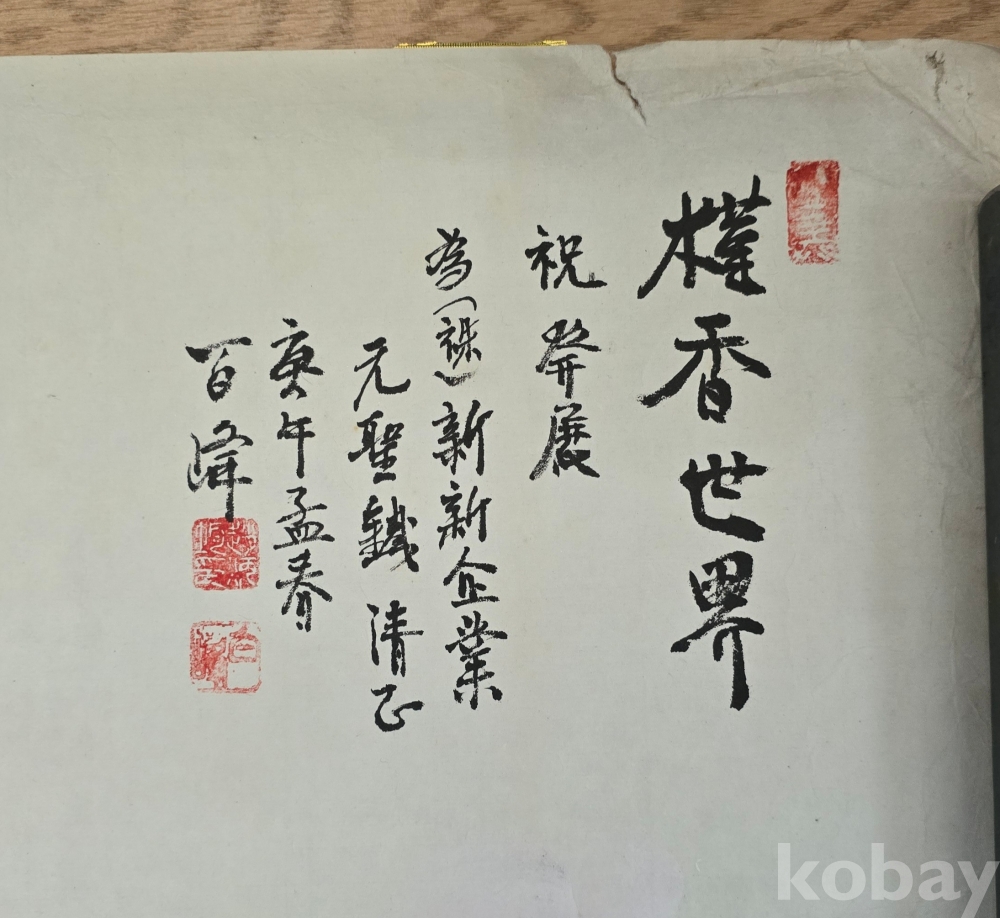 樸香世界
祝 發展
為(株)新新企業
元聖鉄 清正
庚午孟春
百峰
kobay